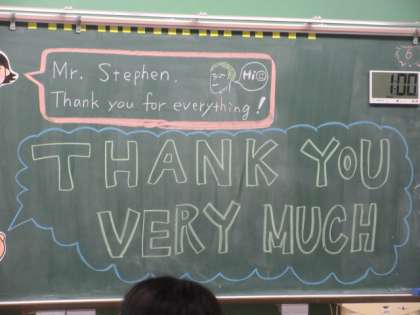 Mr. Stephen.
Hi☺
Thank you for everything!
1:00
THANK YOU
VERY MUCH